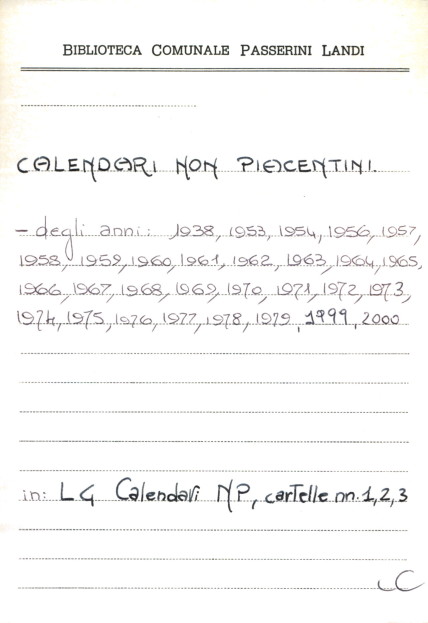 BIBLIOTECA COMUNALE PASSERINI LANDI
CALENDARI NON PIACENTINI.
- degli anni: 1938, 1953, 1954, 1956, 1957,
1958, 1959, 1960, 1961, 1962, 1963, 1964, 1965,
1966, 1967, 1968, 1969, 1970, 1971, 1972, 1973,
1974, 1975, 1976, 1977, 1978, 1979, 1999, 2000
in: LG Calendari NP, cartelle nn. 1,2,3